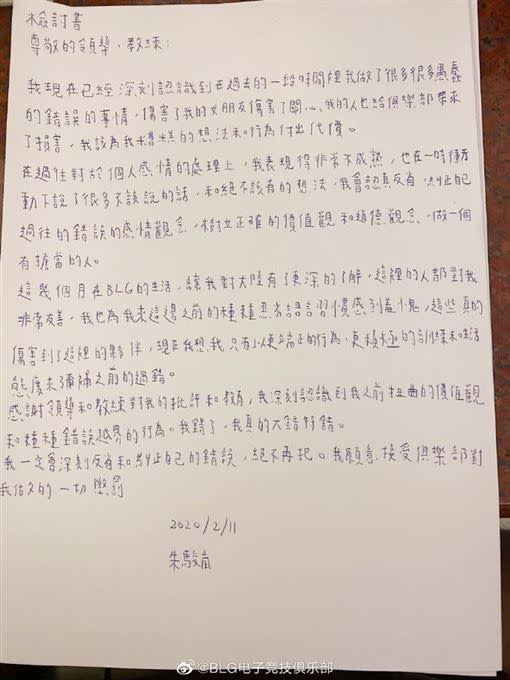 檢討書
尊敬的領導、教練:
我現在已經深刻認識到在過去的一段時間裡我做了很多很多愚蠢
的錯誤的事情,傷害了我的女朋友傷害了關心我的人也給俱樂部帶來
了損害,我該為我糟糕的想法和行為付出代價。
在過往對於個人感情的處理上,我表現得非常不成熟,也在一時衝
動下說了很多不該說的話,和絕不該有的想法,我會認真反省,糾正自己
過往的錯誤的感情觀念,樹立正確的價值觀和道德觀念,做一個
有擔當的人。
這幾個月在BLG的生活,讓我對大陸有了更深的了解,這裡的人都對我
非常友善,我也為我來這邊之前的種種惡劣語言習慣感到羞愧,這些真的
傷害到了這裡的夥伴,現在我想,我只有以更端正的行為、更積極的訓練和生活
態度來彌補之前的過錯。
感謝領導和教練對我的批評和教育,我深刻認識到我之前扭曲的價值觀
和種種錯誤越界的行為。我錯了,我真的大錯特錯。
我一定會深刻反省和糾正自己的錯誤,絕不再犯。我願意接受俱樂部對
我做出的一切懲罰
2020/2/11
朱駿嵐
@BLG电子竞技俱乐部